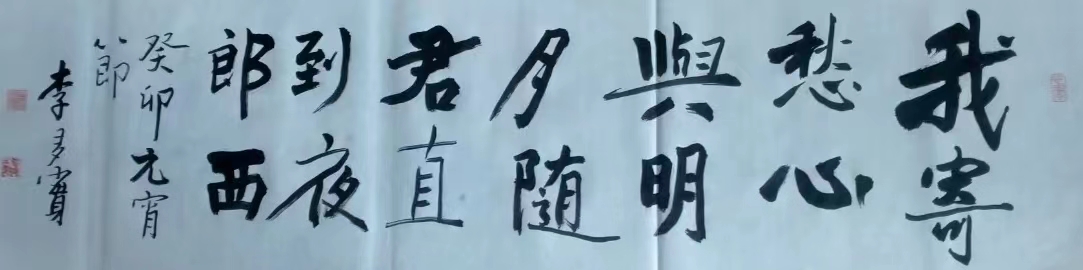 我寄
愁心
與明
月随
君直
到夜
郎西
癸卯元宵
節
李多